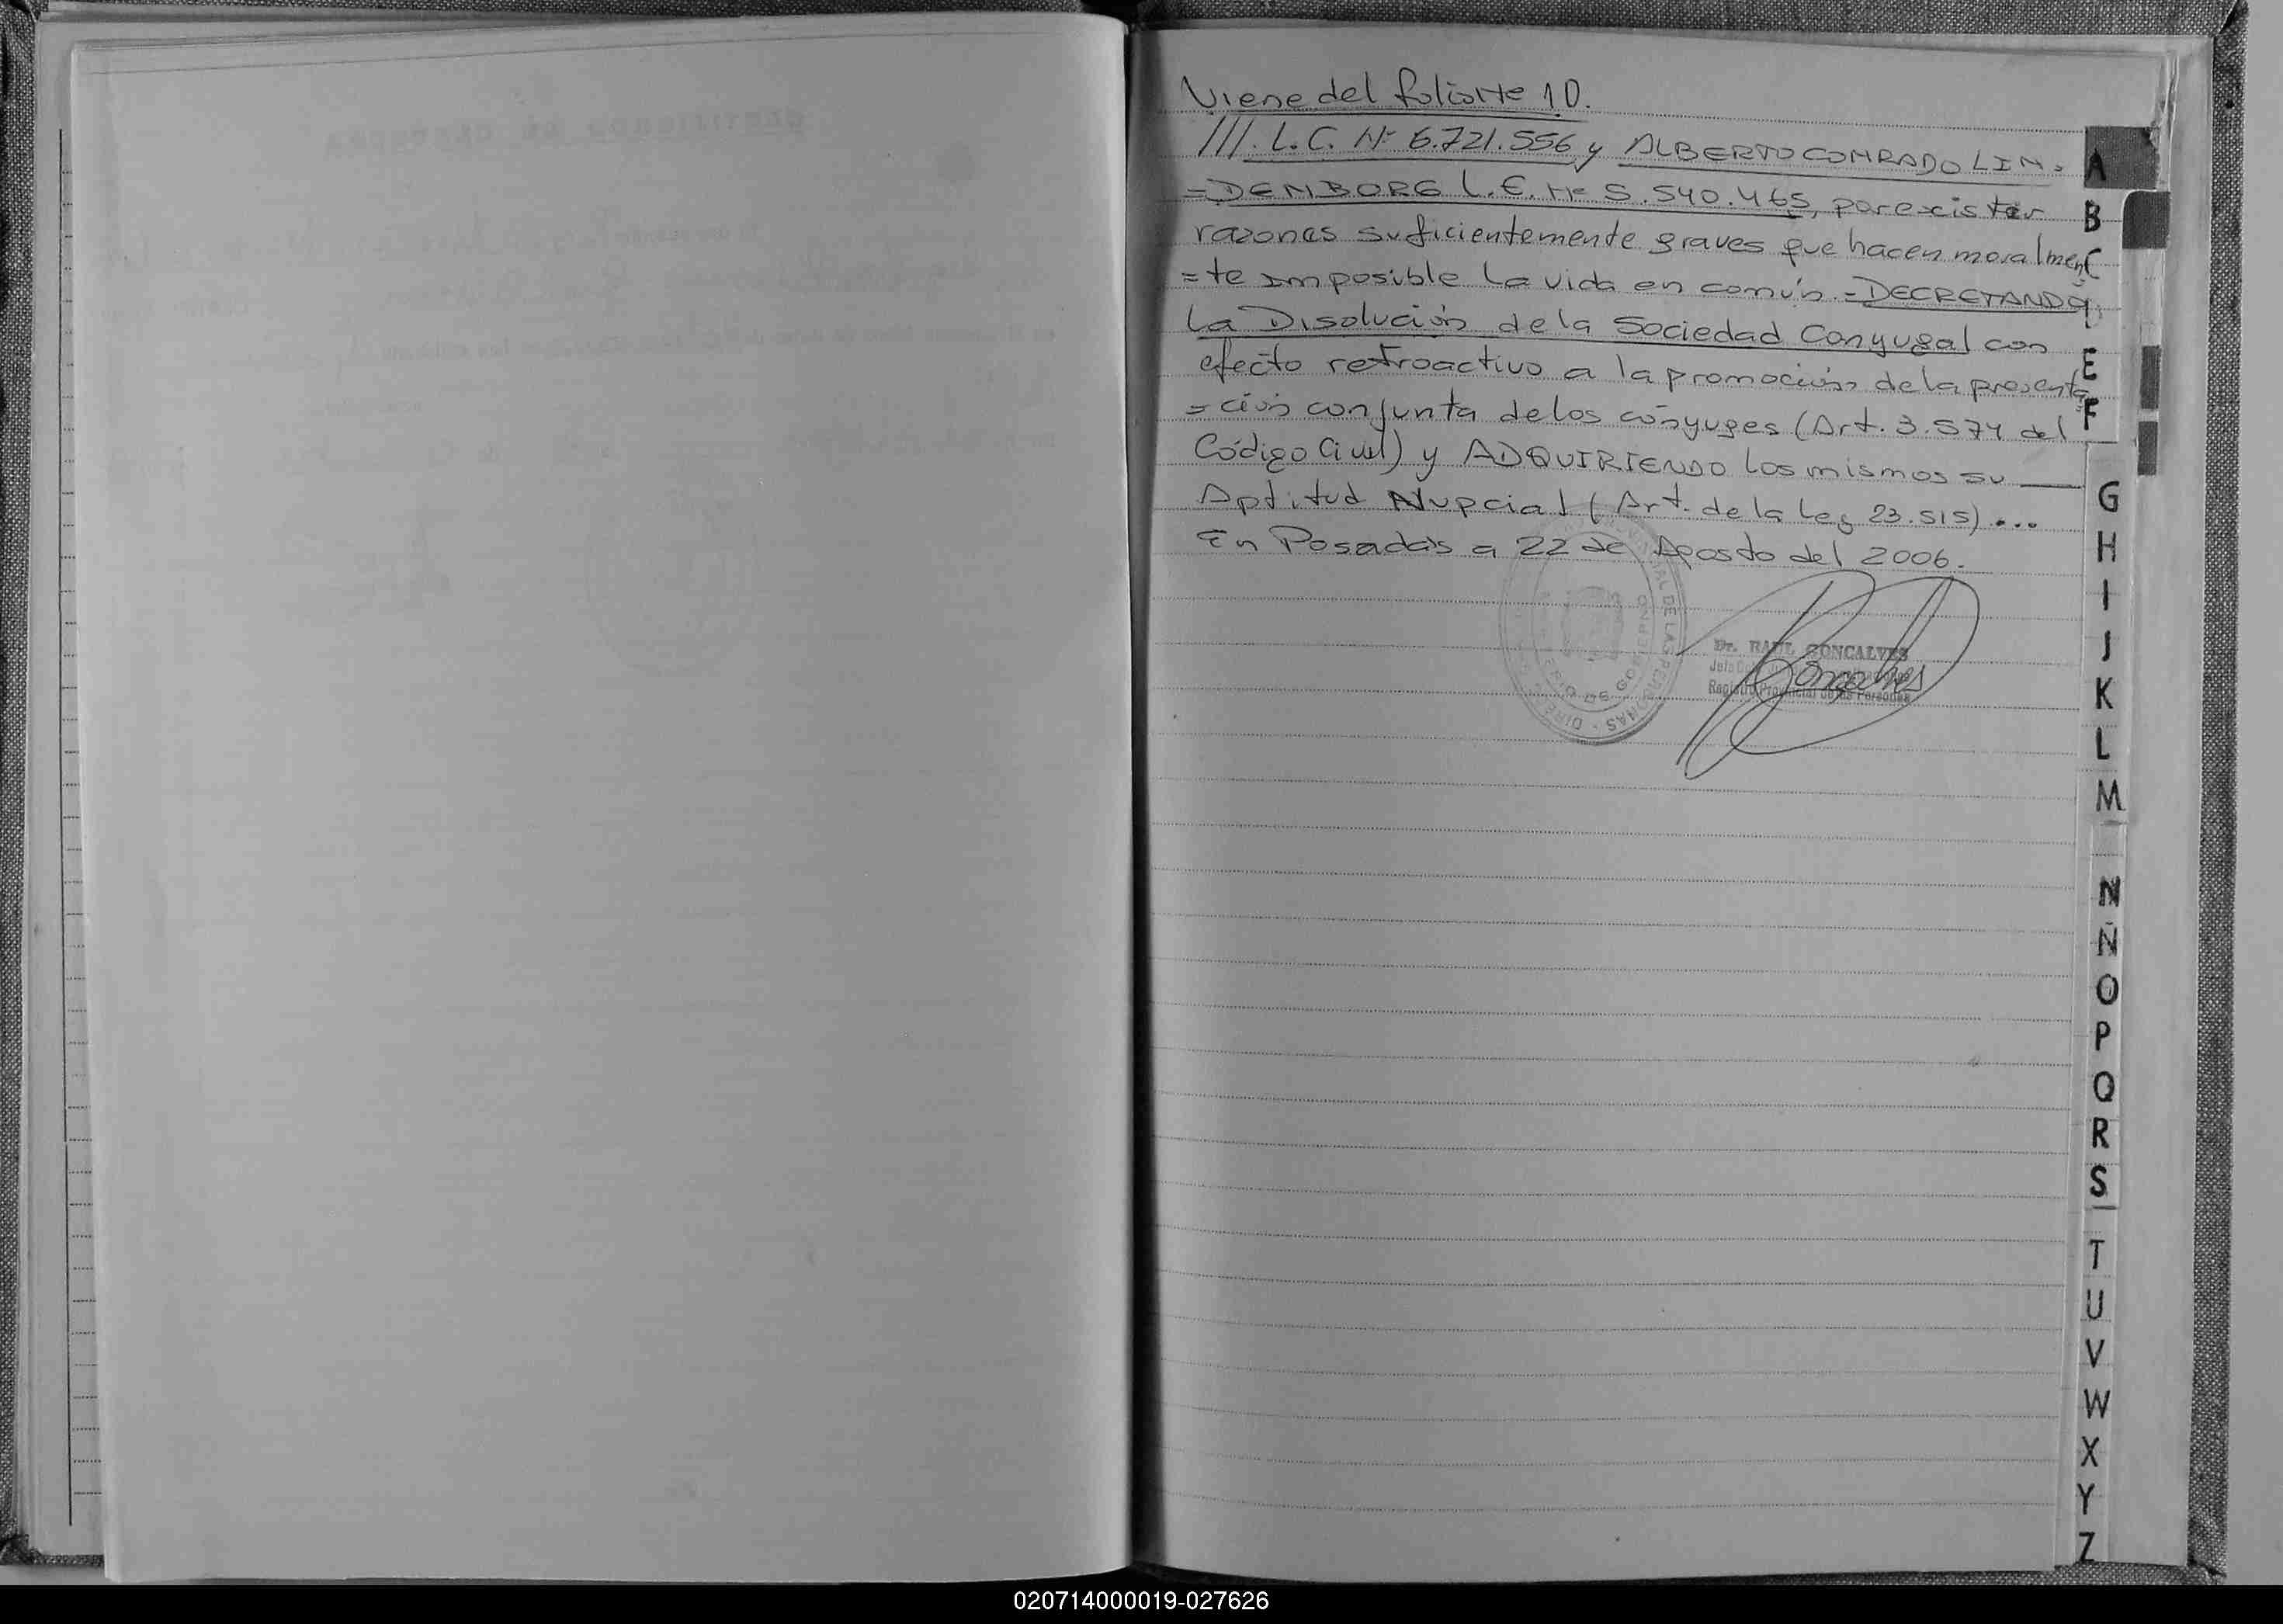 Viene del foliante 10.
///. L.C. Nº 6.721.556 y ALBERTO CONRADO LIN=
=DEMBORG L.E. Nº 5.540.465, por existir
razones suficientemente graves que hacen moralmen
=te imposible la vida en común - DECRETANDO
La Disolución de la Sociedad Conyugal con
efecto retroactivo a la promoción de la presenta
=ción conjunta de los cónyuges (Art. 3.574 del
Código Civil) y ADQUIRIENDO los mismos su
Aptitud Nupcial (Art. de la Ley 23.515) ...
En Posadas a 22 de Agosto del 2006.
Dr. RAUL GONCALVES
Registro Provincial de las Personas
Goncalves
A
B
C
E
F
G
H
I
J
K
L
M
N
Ñ
O
P
Q
R
S
T
U
V
W
X
Y
Z
020714000019-027626